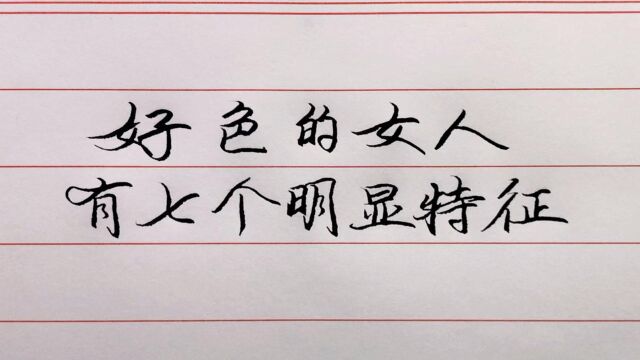 好色的女人
有七个明显特征